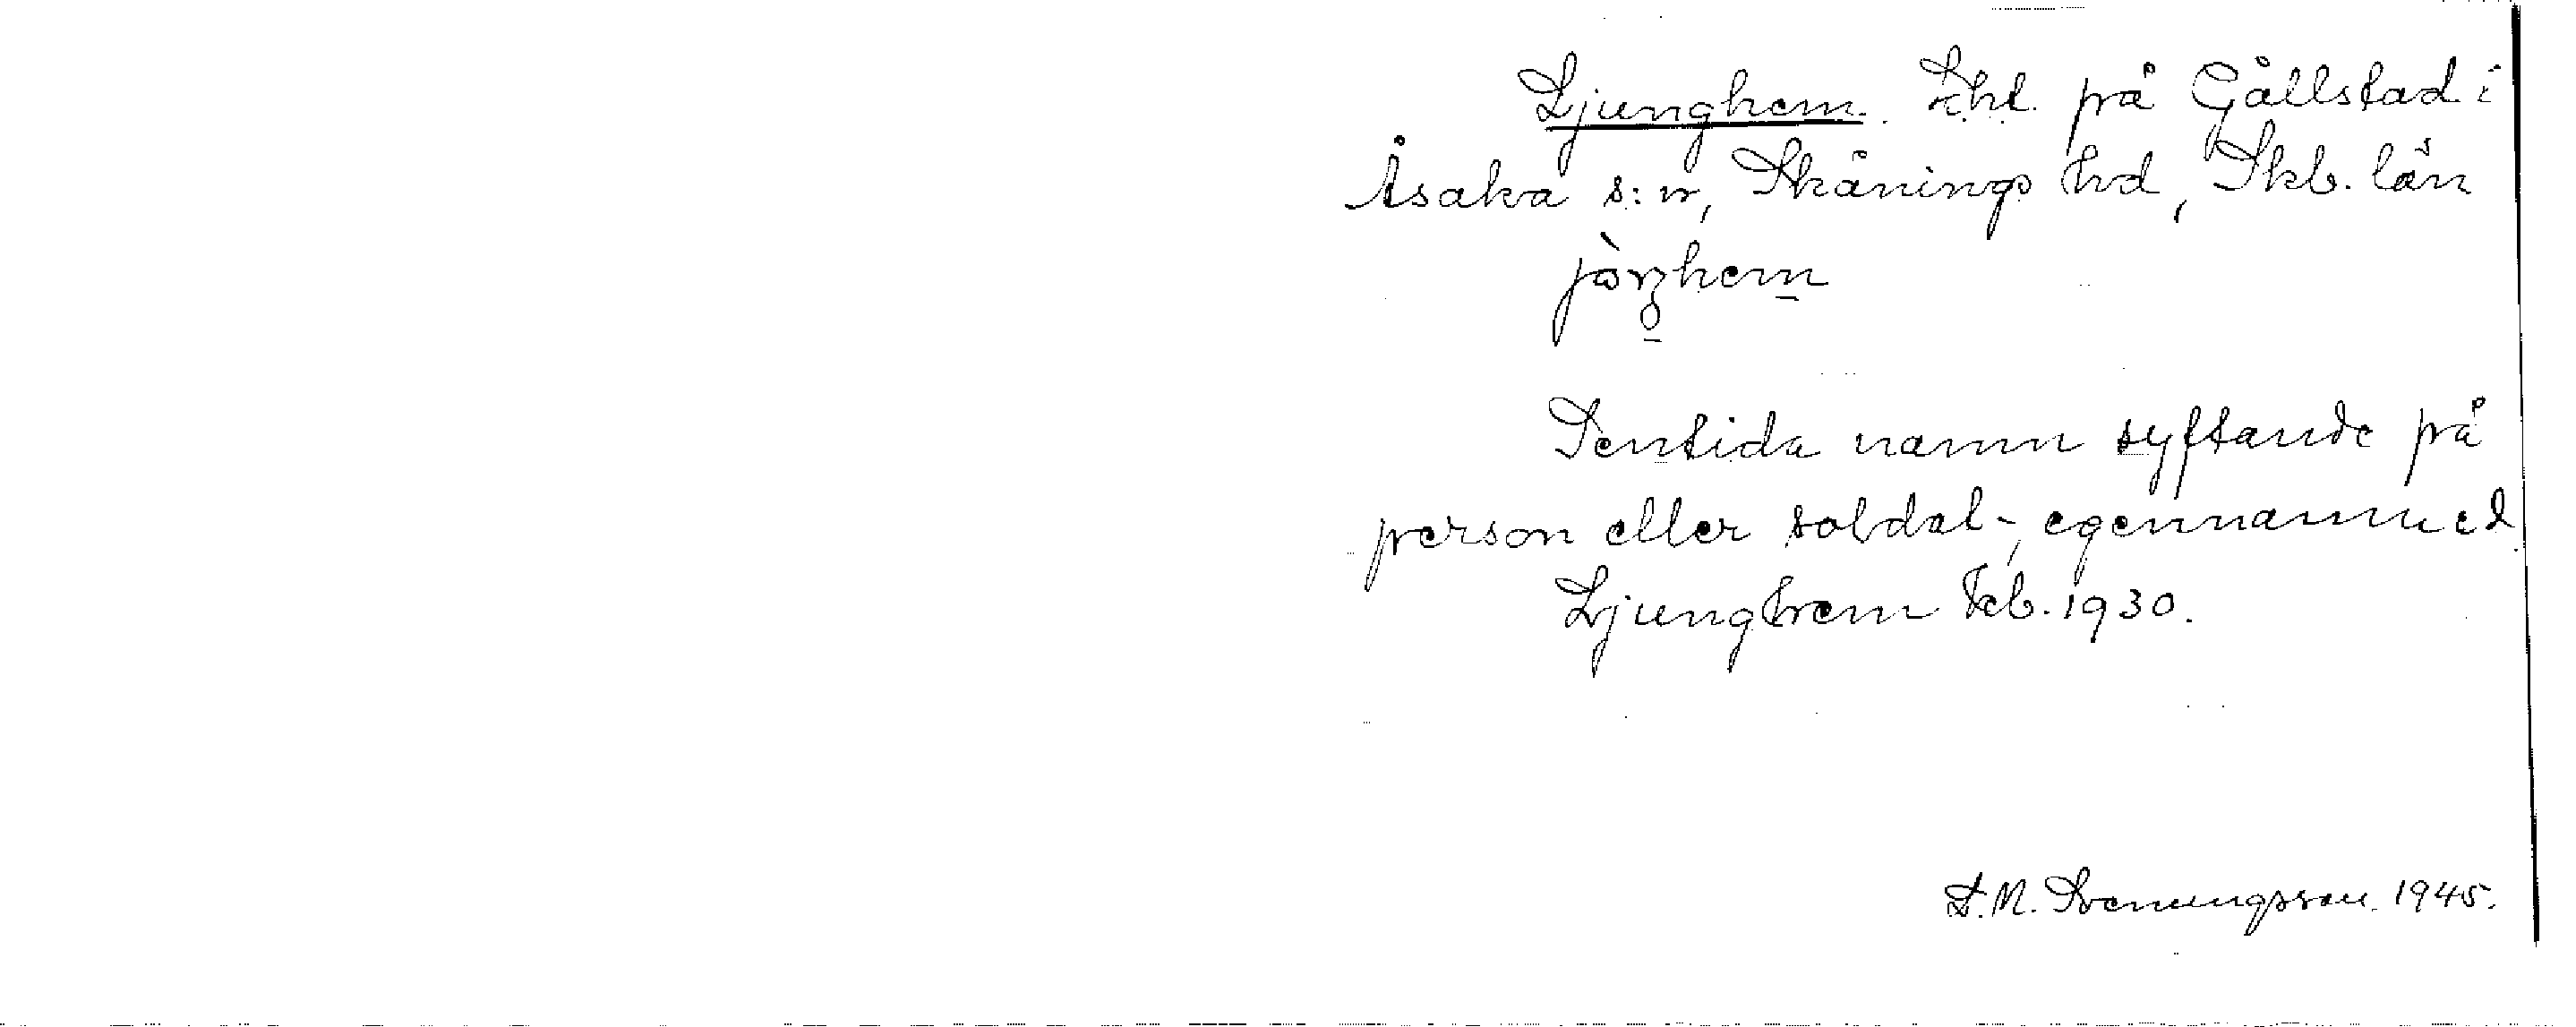 Ljunghem. Lht. på Gällstad i
Åsaka s:n, Skånings hd, Skb. län
jòŋhem
Sentida namn syftande på
person eller soldat-, egennamned
Ljunghem Jeb. 1930.
S. M. Svenungsson. 1945.